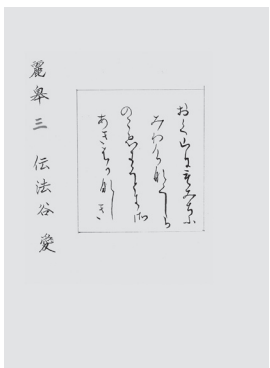 おく山にもみちふ
みわけ鳴くしか
のこゑきくとき所
あきはかなしき
麗皋三 伝法谷 愛